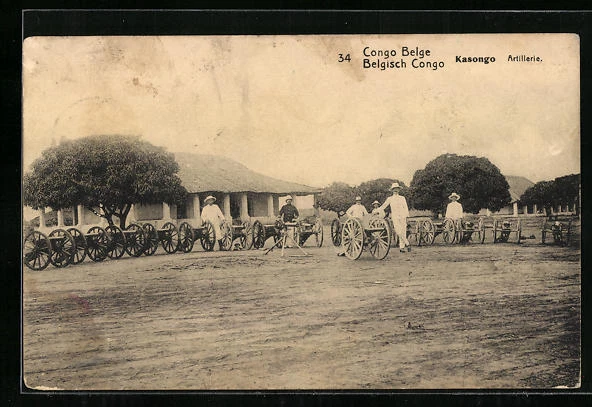 34 Congo Belge
Belgisch Congo Kasongo Artillerie.